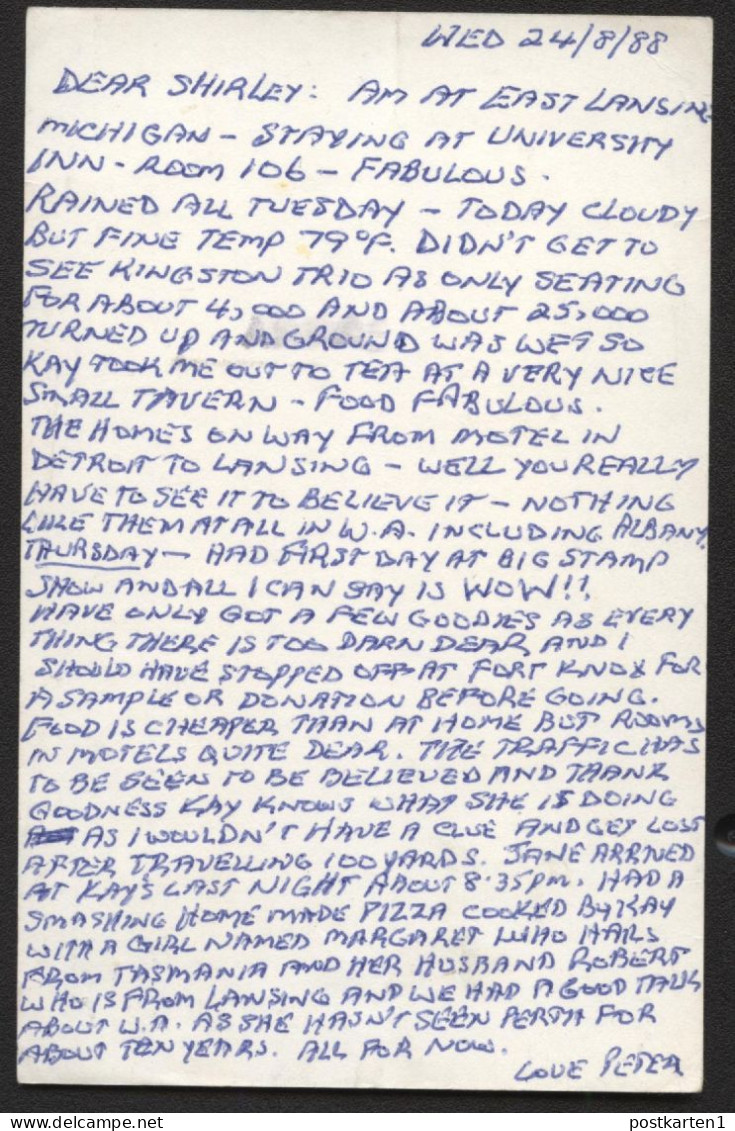 WED 24/8/88
DEAR SHIRLEY: AM AT EAST LANSING
MICHIGAN - STAYING AT UNIVERSITY
INN - ROOM 106 - FABULOUS.
RAINED ALL TUESDAY - TODAY CLOUDY
BUT FINE TEMP 79°F. DIDN'T GET TO
SEE KINGSTON TRIO AS ONLY SEATING
FOR ABOUT 4,000 AND ABOUT 25,000
TURNED UP AND GROUND WAS WET SO
KAY TOOK ME OUT TO TEA AT A VERY NICE
SMALL TAVERN - FOOD FABULOUS.
THE HOMES ON WAY FROM MOTEL IN
DETROIT TO LANSING - WELL YOU REALLY
HAVE TO SEE IT TO BELIEVE IT - NOTHING
LIKE THEM AT ALL IN W.A. INCLUDING ALBANY.
THURSDAY - HAD FIRST DAY AT BIG STAMP
SHOW AND ALL I CAN SAY IS WOW!!
HAVE ONLY GOT A FEW GOODIES AS EVERY
THING THERE IS TOO DARN DEAR AND I
SHOULD HAVE STOPPED OFF AT FORT KNOX FOR
A SAMPLE OR DONATION BEFORE GOING.
FOOD IS CHEAPER THAN AT HOME BUT ROOMS
IN MOTELS QUITE DEAR. THE TRAFFIC HAS
TO BE SEEN TO BE BELIEVED AND THANK
GOODNESS KAY KNOWS WHAT SHE IS DOING
AS I WOULDN'T HAVE A CLUE AND GET LOST
AFTER TRAVELLING 100 YARDS. JANE ARRIVED
AT KAY'S LAST NIGHT ABOUT 8.35PM. HAD A
SMASHING HOME MADE PIZZA COOKED BY KAY
WITH A GIRL NAMED MARGARET WHO HAILS
FROM TASMANIA AND HER HUSBAND ROBERT
WHO IS FROM LANSING AND WE HAD A GOOD TALK
ABOUT W.A. AS SHE HASN'T SEEN PERTH FOR
ABOUT TEN YEARS. ALL FOR NOW.
LOVE PETER
postkarten1